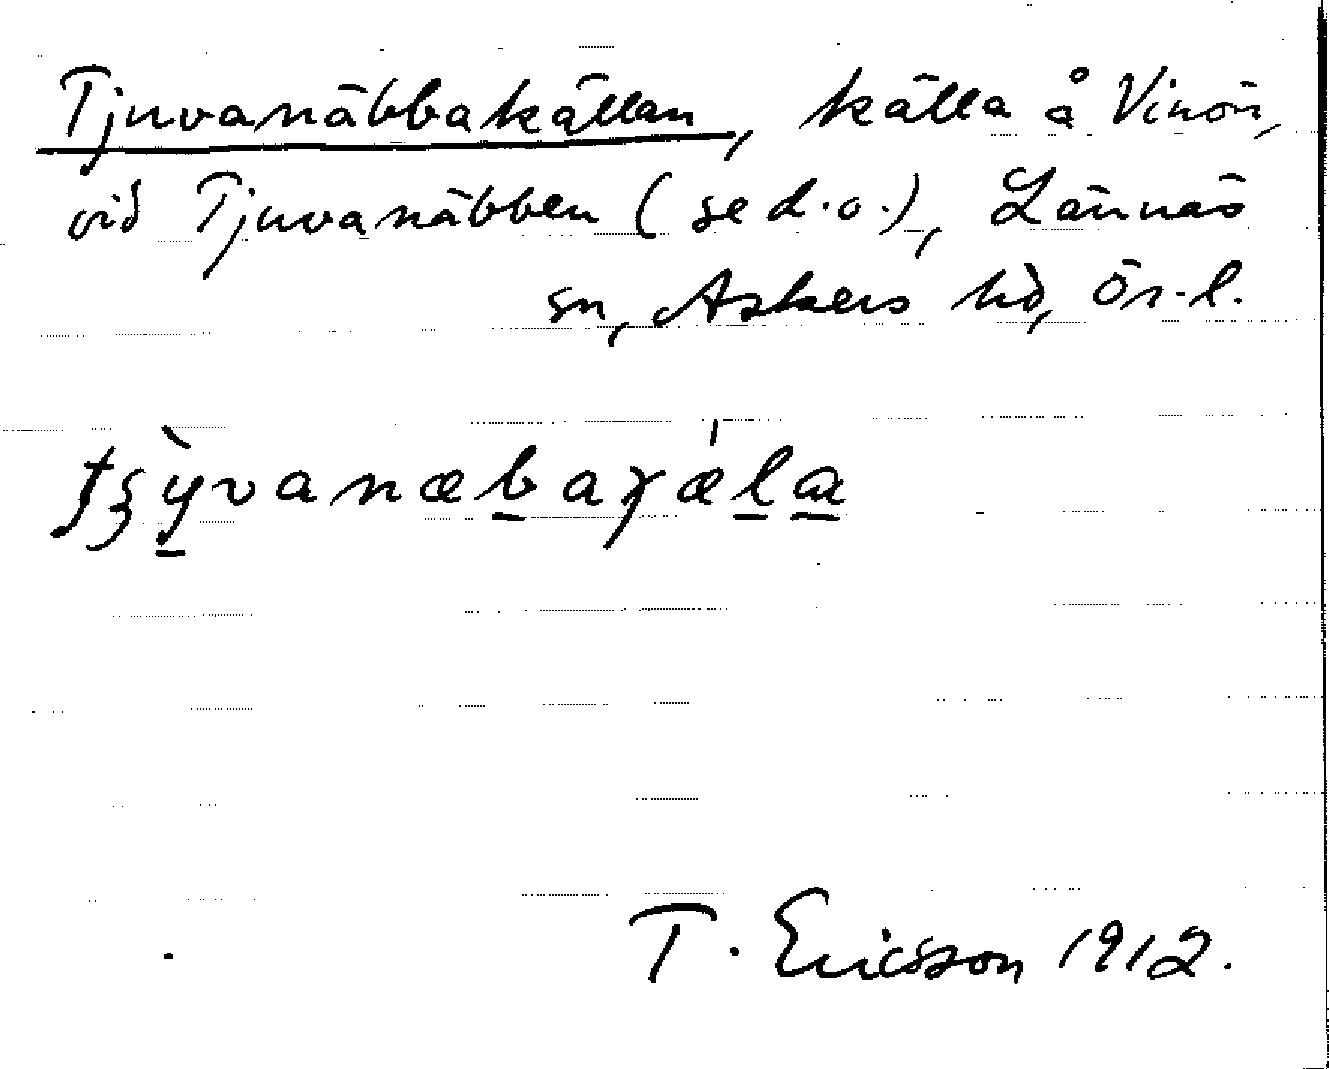 Tjuvanäbbakällan, källa å Vinön,
vid Tjuvanäbben (se d.o.), Lännäs
sn, Askers hd, Ör. l.
T. Ericsson 1912.